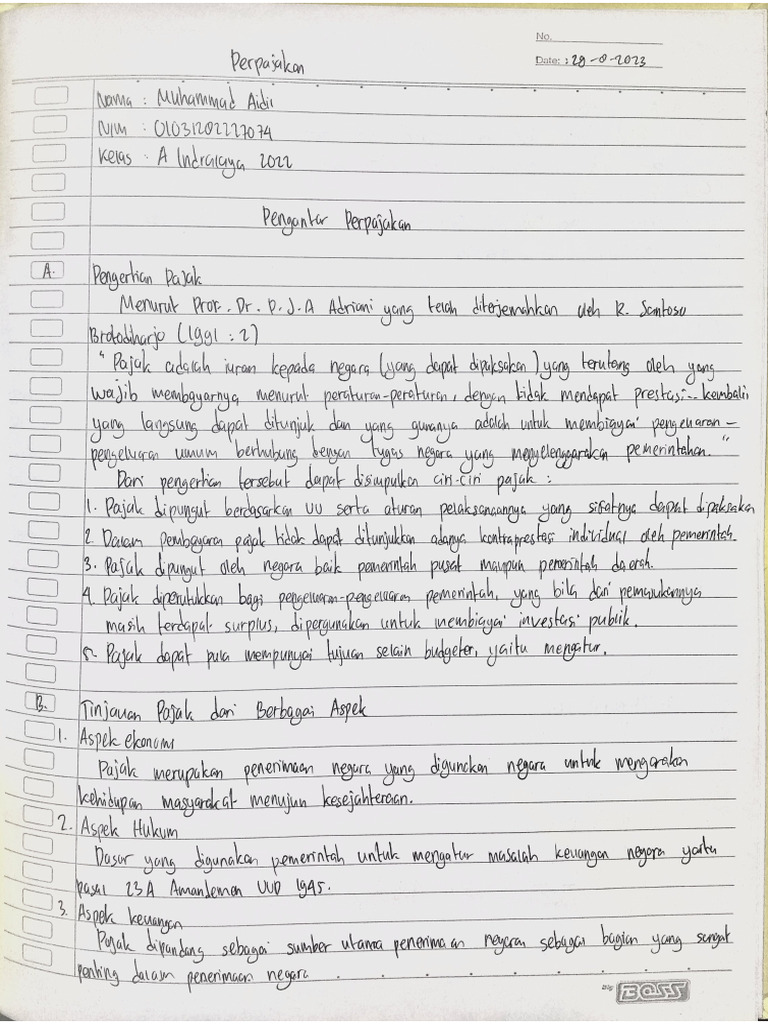 No.
Perpajakan
Date: : 29-8-2023
Nama : Muhammad Aidil
NIM : 01031202227074
Kelas : A Indralaya 2022
Pengantar Perpajakan
A. Pengertian Pajak
Menurut Prof. Dr. P. J. A Adriani yang telah diterjemahkan oleh R. Santoso
Brotodiharjo (1991 : 2)
" Pajak adalah iuran kepada negara (yang dapat dipaksakan) yang terutang oleh yang
wajib membayarnya menurut peraturan-peraturan, dengan tidak mendapat prestasi-kembali
yang langsung dapat ditunjuk dan yang gunanya adalah untuk membiayai pengeluaran-
pengeluaran umum berhubung dengan tugas negara yang menyelenggarakan pemerintahan."
Dari pengertian tersebut dapat disimpulkan ciri-ciri pajak :
1. Pajak dipungut berdasarkan UU serta aturan pelaksanaannya yang sifatnya dapat dipaksakan
2. Dalam pembayaran pajak tidak dapat ditunjukkan adanya kontraprestasi individual oleh pemerintah.
3. Pajak dipungut oleh negara baik pemerintah pusat maupun pemerintah daerah.
4. Pajak diperutukkan bagi pengeluaran-pengeluaran pemerintah, yang bila dari pemasukannya
masih terdapat surplus, dipergunakan untuk membiayai investasi publik.
5. Pajak dapat pula mempunyai tujuan selain budgeter, yaitu mengatur.
B. Tinjauan Pajak dari Berbagai Aspek
1. Aspek ekonomi
Pajak merupakan penerimaan negara yang digunakan negara untuk mengarakan
kehidupan masyarakat menujun kesejahteraan.
2. Aspek Hukum
Dasar yang digunakan pemerintah untuk mengatur masalah keuangan negara yaitu
pasal 23A Amandemen UUD 1945.
3. Aspek keuangan
Pajak dipandang sebagai sumber utama penerimaan negara sebagai bagian yang sangat
penting dalam penerimaan negara
BOSS